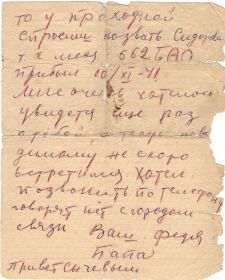 то у проходной
спросить позвать Сидорова
т.к. меня 662 БАП
Прибыл 10/XI-41
Мне очень хотелось
увидется еще раз
с тобой, а теперь пови
димому не скоро
встретимся. Хотел
позвонить по телефону
говорят нет с городом
связи Ваш Федя
Папа
Привет Сычевым